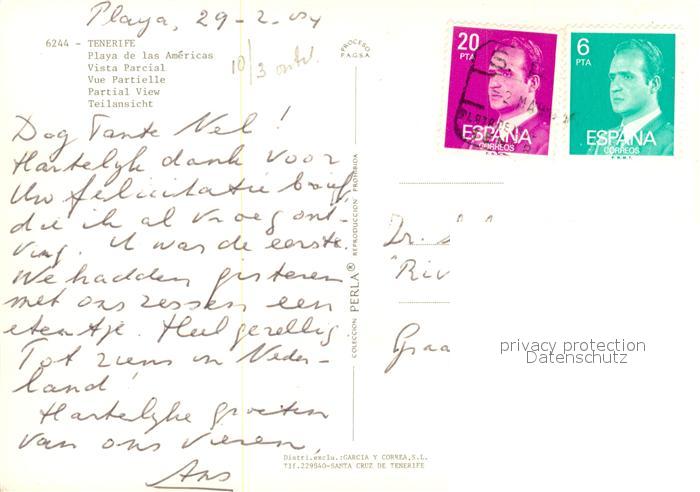 Playa, 29-2-84
6244 - TENERIFE
Playa de las Américas
Vista Parcial
Vue Partielle
Partial View
Teilansicht
10/3 ontv.
PROCESO
F.A.G.S.A.
Dag Tante Nel!
Hartelyk dank voor
Uw felicitatie brief,
die ik al vroeg ont-
ving. U was de eerste.
We hadden gisteren
met ons zessen een
etentje. Heel gezellig.
Tot ziens in Neder-
land!
Hartelyke groeten
van ons vieren,
Ans
COLECCION PERLA® REPRODUCCION PROHIBIDA
Distri.exclu.:GARCIA Y CORREA,S.L.
Tlf.229540-SANTA CRUZ DE TENERIFE
20
PTA
ESPAÑA
CORREOS
F.N.M.T.
6
PTA
ESPAÑA
CORREOS
F.N.M.T.
Riv
Graa
privacy protection
Datenschutz